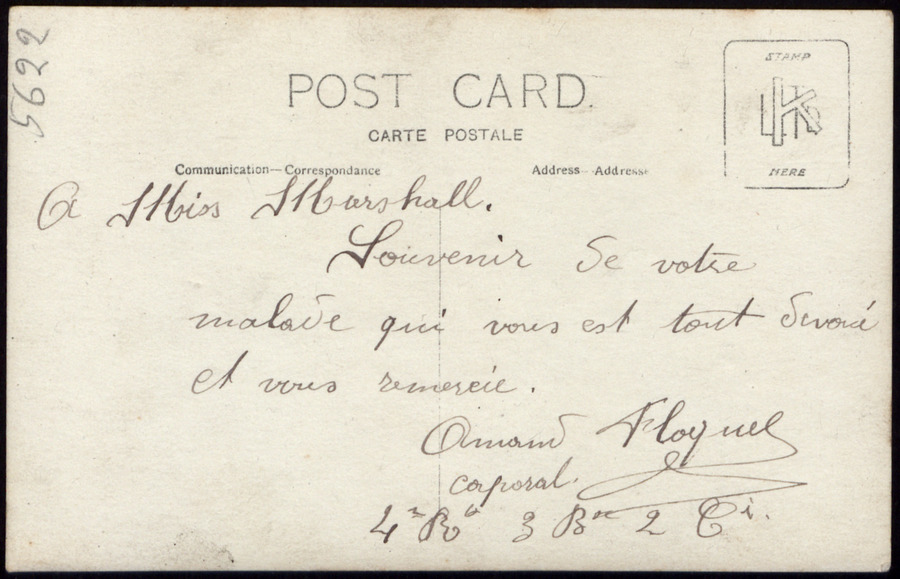 5622
STAMP
POST CARD
CARTE POSTALE
HERE
Communication—Correspondance Address—Addresse
A Miss Marshall.
Souvenir de votre
malade qui vous est tout devoué
et vous remercie.
Amand Floquet
caporal.
3 2